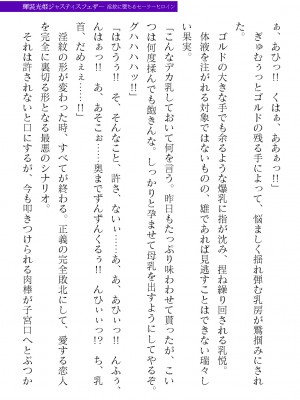 輝装光姫ジャスティスフェザー 淫欲に堕ちるセーラーヒロイン
「ぁ、あひっ!! くはぁ、ああぁっ!!」
ぎゅむぅっとゴルドの残る手によって、悩ましく揺れ弾む乳房が鷲掴みにされ
た。
ゴルドの大きな手でも余るような爆乳に指が沈み、捏ね繰り回される乳悦。
体液を注がれる対象ではないものの、雄であれば見逃すことはできない瑞々し
い果実。
「こんなデカ乳しておいて何を言う。昨日もたっぷり味わわせて貰ったが、こい
つは何度揉んでも飽きんな。しっかりと孕ませて母乳を出すようにしてやるぞ。
グハハハハッ!!」
「はひうぅ!! そ、そんなこと、許さ、ないぃ……あ、あ、あひぃっ!! んふぁ、
んはぁっ!! あ、あそこぉ……奥までずんずんくるぅ!! んひぃいっ!? ち、乳
首、だめぇ……!!」
淫紋の形が変わった時、すべてが終わる。正義の完全敗北にして、愛する恋人
を完全に裏切る形となる最悪のシナリオ。
それは許されないと口にするが、今も叩きつけられる肉棒が子宮口へとぶつか